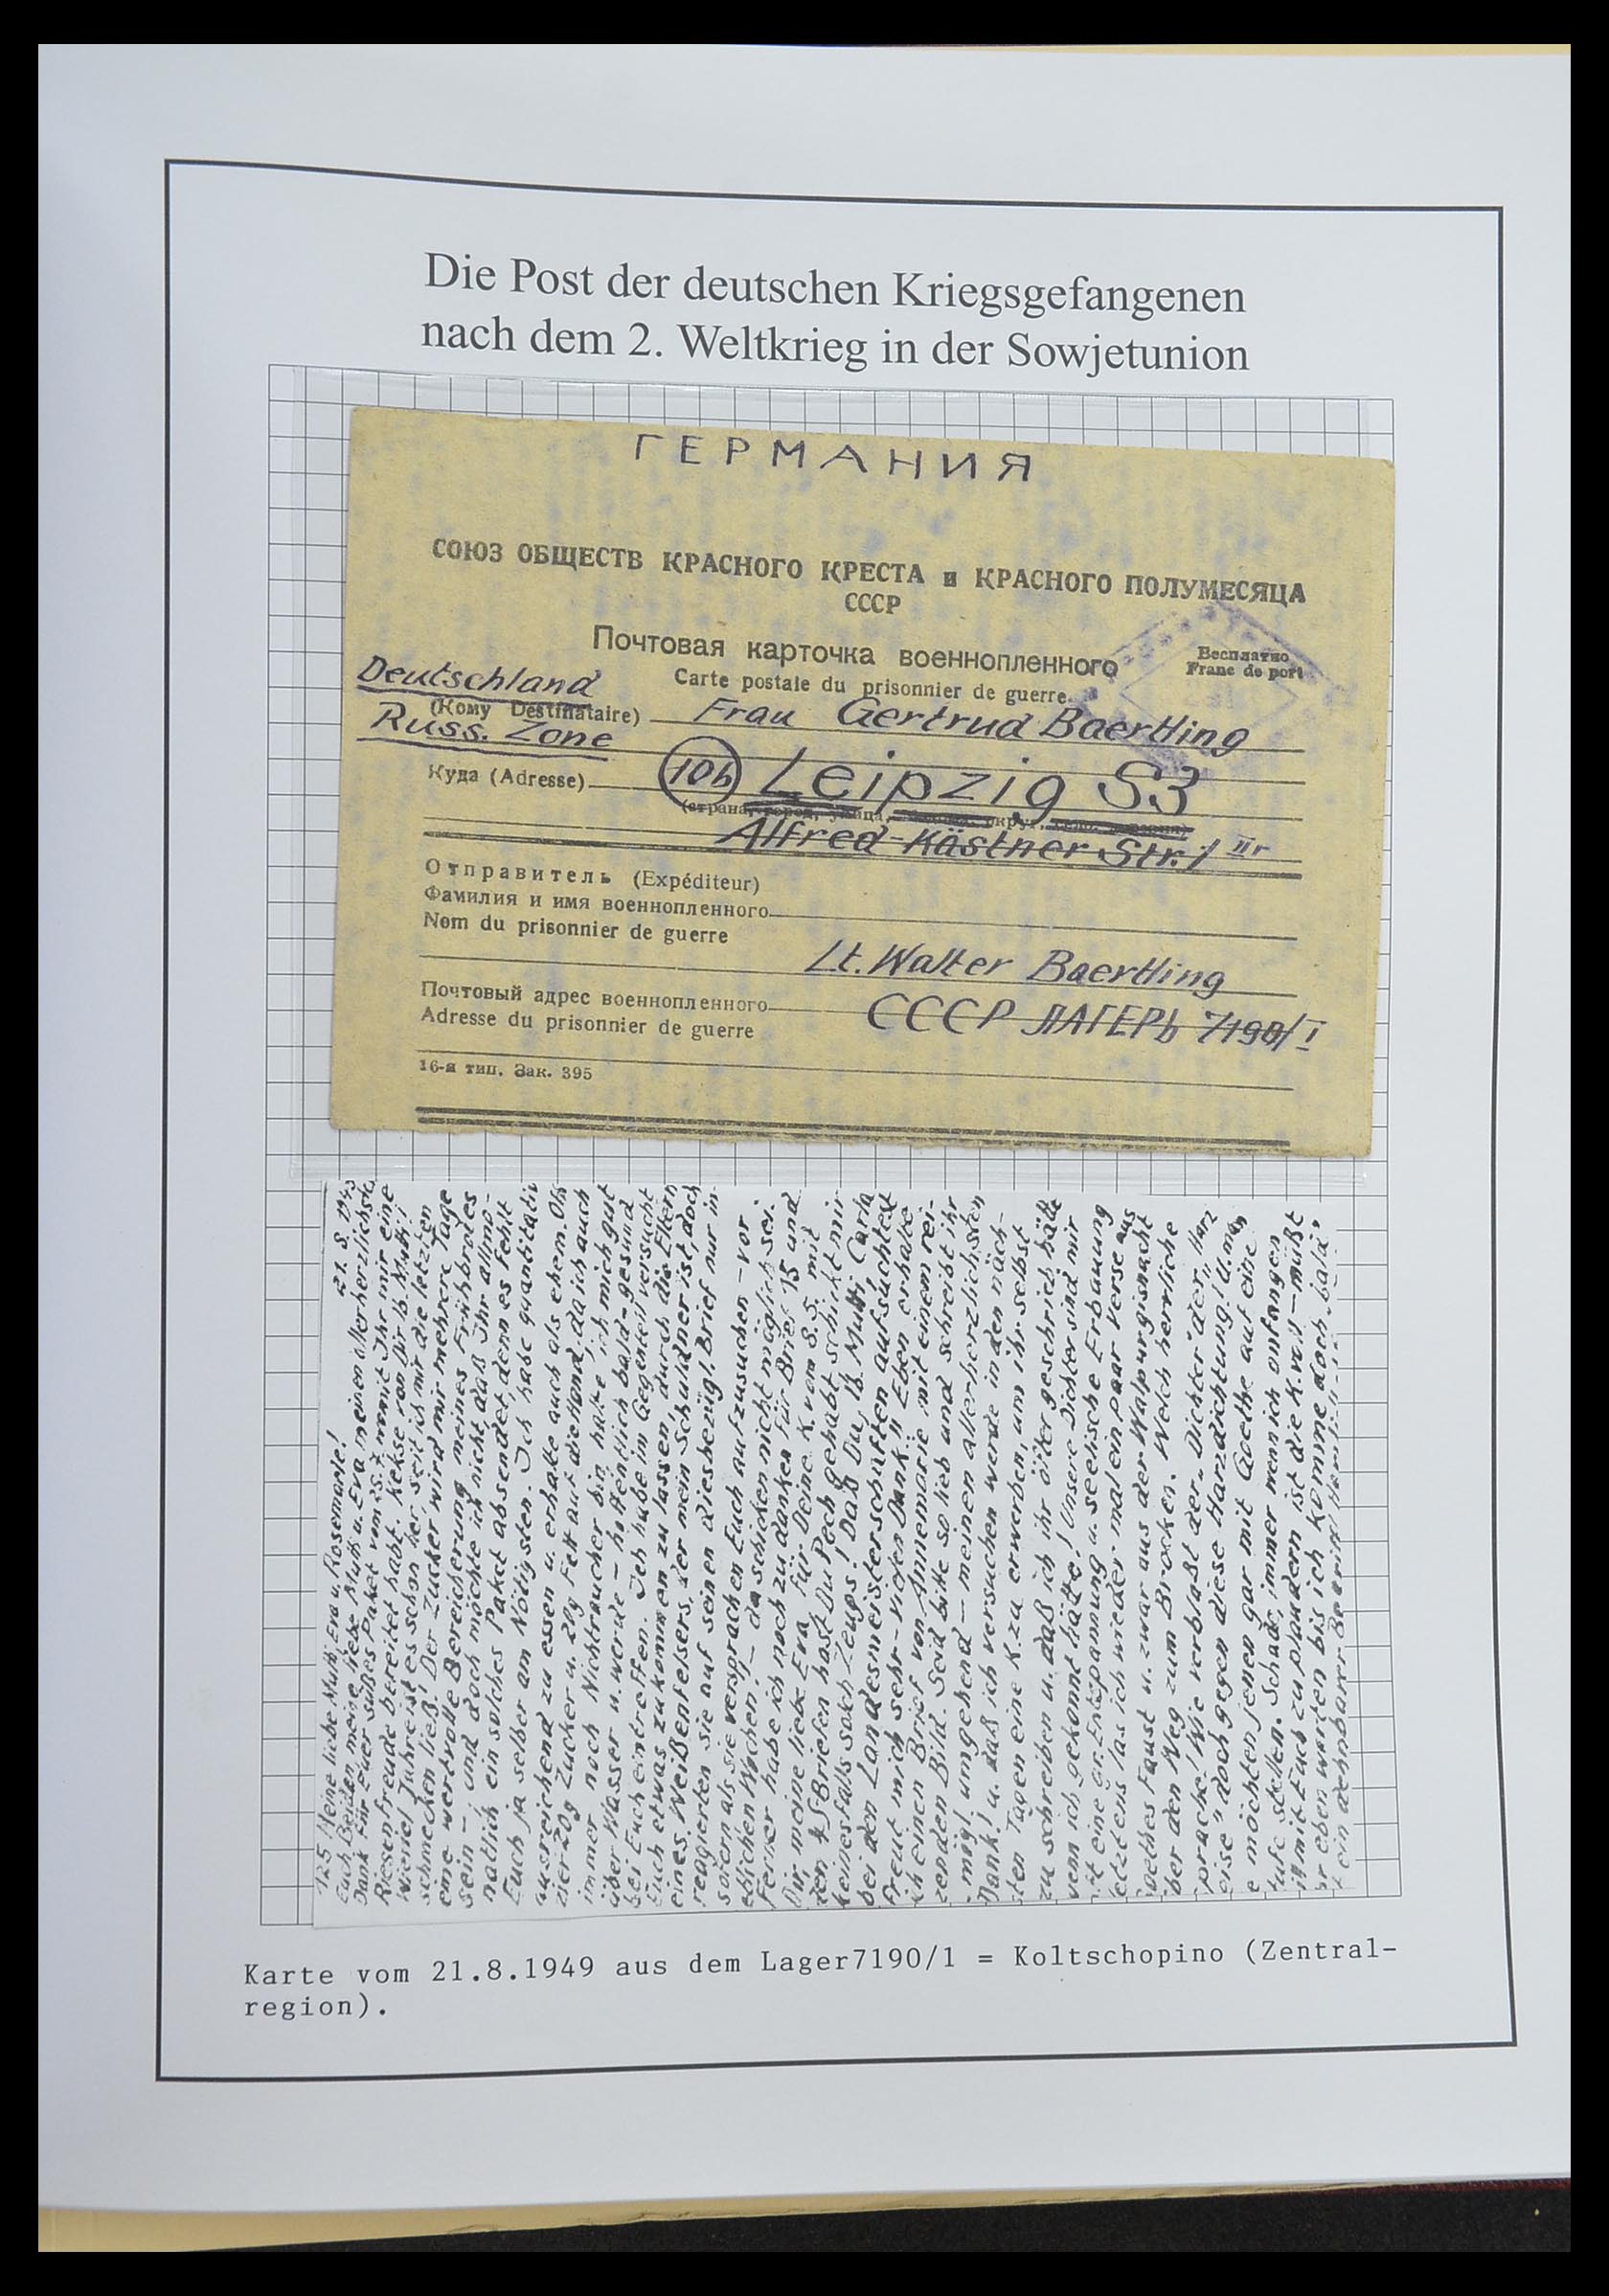 Die Post der deutschen Kriegsgefangenen
nach dem 2. Weltkrieg in der Sowjetunion
ГЕРМАНИЯ
СОЮЗ ОБЩЕСТВ КРАСНОГО КРЕСТА и КРАСНОГО ПОЛУМЕСЯЦА
СССР
Почтовая карточка военнопленного
Бесплатно
Franc de port
Carte postale du prisonnier de guerre
Deutschland
(Кому Destinataire) Frau Gertrud Baertling
Russ. Zone
Куда (Adresse) 10b Leipzig S3
Alfred-Kästner-Str. 1 IIr
Отправитель (Expéditeur)
Фамилия и имя военнопленного
Nom du prisonnier de guerre
Lt. Walter Baertling
Почтовый адрес военнопленного
Adresse du prisonnier de guerre
СССР ЛАГЕРЬ 7190/I
16-я тип. Зак. 395
21. 8. 1949
125 Meine liebe Mutti, Eva u. Rosemarie!
Euch Beiden meine liebe Mutti u. Eva meinen allerherzlichsten
Dank für Euer süßes Paket vom 25.7. womit Ihr mir eine
Riesenfreude bereitet habt. Kekse von Dir lb. Mutti!
Wieviel Jahre ist es schon her seit ich mir die letzten
schmecken ließ! Der Zucker wird mir mehrere Tage
eine wertvolle Bereicherung meines Frühbrotes
sein - und doch möchte ich nicht, daß Ihr allmo-
natlich ein solches Paket absendet, denn es fehlt
Euch ja selber am Nötigsten. Ich habe quantitativ
ausreichend zu essen u. erhalte auch als ehem. Offi
zier 20g Zucker u. 20g Fett auf die Hand, da ich auch
immer noch Nichtraucher bin halte ich mich gut
über Wasser u. werde - hoffentlich bald - gesund
bei Euch eintreffen. Ich habe im Gegenteil versucht
Euch etwas zukommen zu lassen, durch die Eltern
eines Weißenfelsers, der mein Schuldner ist, doch
reagierten sie auf seinen diesbezügl. Brief nur in-
sofern als sie versprachen Euch aufzusuchen - vor
etlichen Wochen! - da schicken nicht möglich sei.
Ferner habe ich noch zu danken für Brief 15 und
Dir meine liebe Eva für Deine K. vom 8.5. mit
den Briefen hast Du Pech gehabt schickt mir
keinesfalls solch Zeugs! Daß Du, lb. Mutti Carla
bei den Landesmeisterschaften aufsuchtest
freut mich sehr - vielen Dank!! Eben erhalte
ich einen Brief von Annemarie mit einem rei-
zenden Bild. Seid bitte so lieb und schreibt ihr
mögl. umgehend - meinen allerherzlichsten
Dank! u. daß ich versuchen werde in den näch-
sten Tagen eine K. zu erwerben, um ihr selbst
zu schreiben u. daß ich ihr öfter geschrieb. hätte
wenn ich gekonnt hätte! Unsere Dichter sind mir
eine gr. Entspannung u. seelische Erbauung
letztens las ich wieder mal ein paar Verse aus
Goethes Faust u. zwar aus der Walpurgisnacht
über den Weg zum Brocken. Welch herrliche
Sprache! Wie verblaßt der "Dichter der Harz
reise" doch gegen diese Harzdichtung! U. man
möchten jenen gar mit Goethe auf eine
Stufe stellen. Schade, immer wenn ich anfangen
will mit Euch zu plaudern ist die K. voll - müßt
Ihr eben warten bis ich komme doch bald,
Karte vom 21.8.1949 aus dem Lager7190/1 = Koltschopino (Zentral-
region).